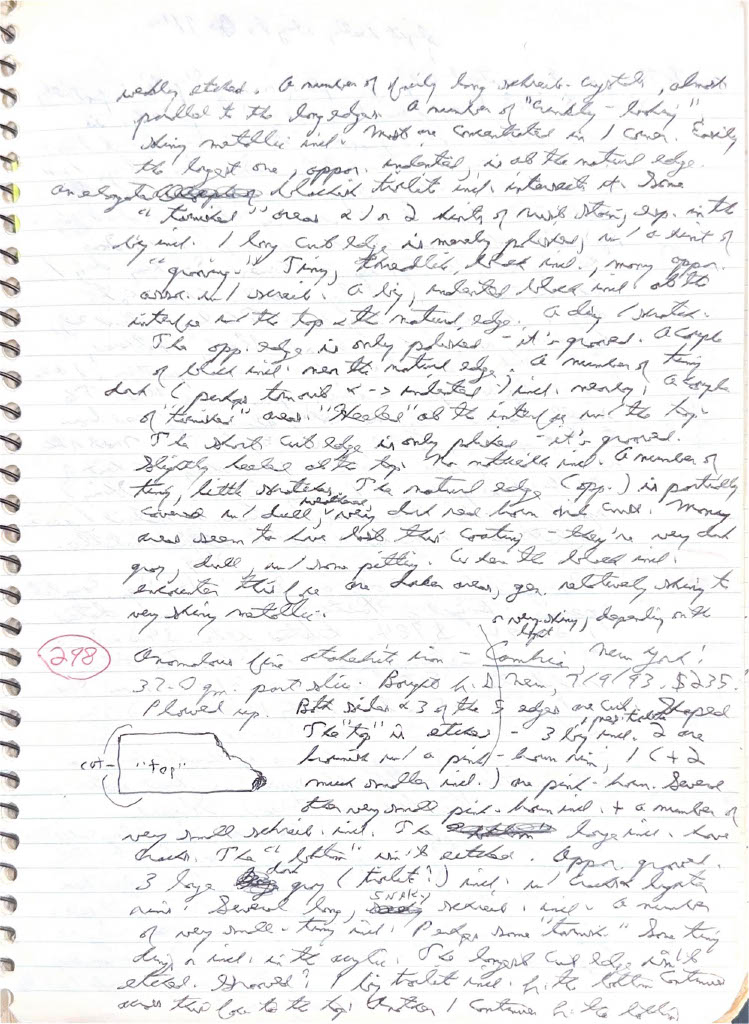 weakly etched. A number of fairly long schreib. crystals, almost
parallel to the long edges. A number of "crinkly-looking"
shiny metallic incl. Most are concentrated in 1 corner. Easily
the largest one, appar. indented, is at the natural edge.
An elongated blackish troilite incl. intersects it. Some
"tarnished" areas & 1 or 2 hints of rust stain, esp. in the
big incl. 1 long cut edge is merely polished, w/ a hint of
"grooving." Tiny, threadlike black incl., many appar.
assoc. w/ schreib. A big, indented black incl. at the
interface w/ the top & the natural edge. A ding/scratch.
The opp. edge is only polished - it's grooved. A couple
of black incl. near the natural edge. A number of tiny
dark (perhaps & -> indented) incl. nearby. A couple
of "tarnished" areas. "Heated" at the interface w/ the top.
The short cut edge is only polished - it's grooved.
Slightly heated at the top. No noticeable incl. A number of
tiny, little scratches. The natural edge (opp.) is partially
covered w/ dull, weathered, very dark red brown oxid. crust. Many
areas seem to have lost this coating - they're very dark
gray, dull, w/ some pitting. Where the black incl.
encounter this face are darker areas, gen. relatively shiny to
very shiny metallic.
or very shiny, depending on the
light
298 Anomalous fine octahedrite iron - Cambria, New York!
37.0 gm. part slice. Bought fr. D New, 7/9/93. $235.
Plowed up. Both sides & 3 of the 5 edges are cut. Shaped
The "top" is etched - 3 big incl. 2 are
brownish w/ a pink-brown rim, 1 (+ 2
much smaller incl.) are pink-brown. Several
other very small pink-brown incl. + a number of
cut- "top"
very small schreib. incl. The large incl. have
cracks. The "bottom" isn't etched. Appar. grooved.
3 large dark gray (troilite?) incl. w/ cracks & lighter
rims. Several long, SNAKY schreib. incl. A number
of very small - tiny incl. Perhaps some "tarnish." Some tiny
dings or incl. in the acrylic. The longest cut edge isn't
etched. Grooved? 1 big troilite incl. fr. the bottom continues
across this face to the top. Another 1 continues fr. the bottom